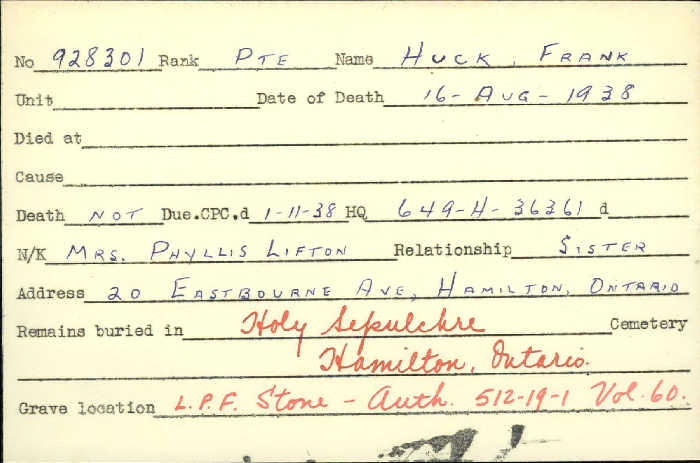 No 928301 Rank PTE Name HUCK, FRANK
Unit Date of Death 16-AUG-1938
Died at
Cause
Death NOT Due.CPC.d 1-11-38 HQ 649-H-36361 d
N/K MRS. PHYLLIS LIFTON Relationship SISTER
Address 20 EASTBOURNE AVE, HAMILTON, ONTARIO
Remains buried in Holy Sepulchre Cemetery
Hamilton, Ontario.
Grave location L.P.F. Stone - Auth. 512-19-1 Vol. 60.